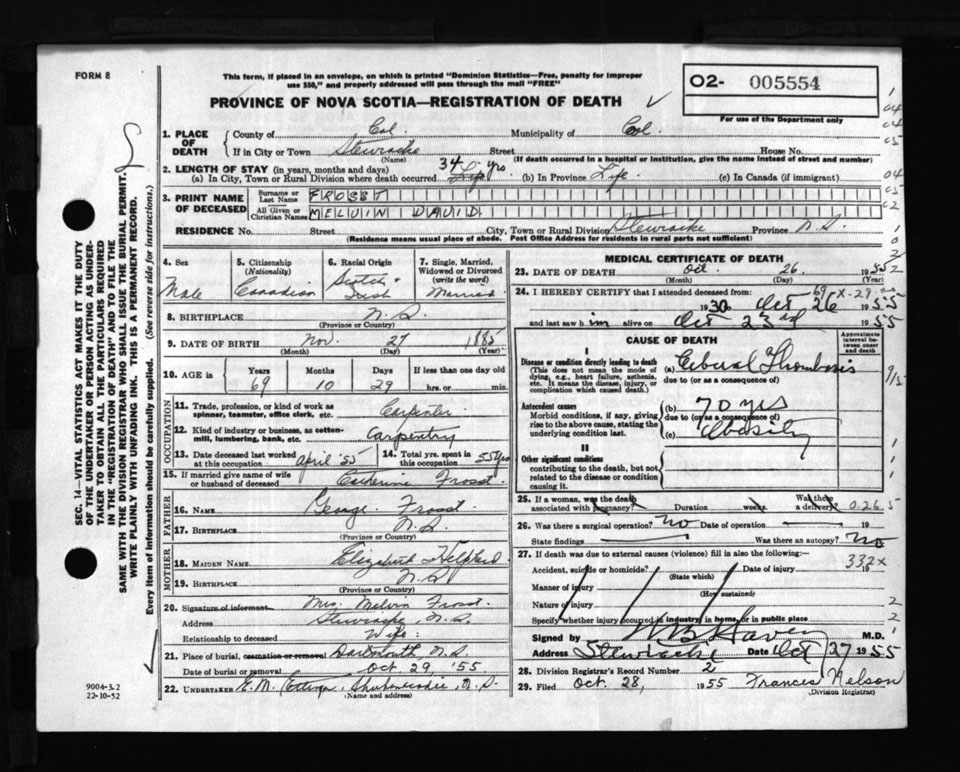 FORM 8
This form, if placed in an envelope, on which is printed "Dominion Statistics—Free, penalty for improper
use $50," and properly addressed will pass through the mail "FREE"
O2- 005554
For use of the Department only
PROVINCE OF NOVA SCOTIA—REGISTRATION OF DEATH
1. PLACE OF DEATH
County of Col. Municipality of Col.
If in City or Town Stewiacke Street House No.
(Name) (If death occurred in a hospital or institution, give the name instead of street and number)
2. LENGTH OF STAY (in years, months and days)
(a) In City, Town or Rural Division where death occurred 34 yrs (b) In Province Life. (c) In Canada (if immigrant)
3. PRINT NAME OF DECEASED
Surname or Last Name FROST
All Given or Christian Names MELVIN DAVID
RESIDENCE No. Street City, Town or Rural Division Stewiacke Province N.S.
(Residence means usual place of abode. Post Office Address for residents in rural parts not sufficient)
4. Sex Male
5. Citizenship (Nationality) Canadian
6. Racial Origin Scotch Irish
7. Single, Married, Widowed or Divorced (write the word) Married
8. BIRTHPLACE N.S.
(Province or Country)
9. DATE OF BIRTH Nov. 27 1885
(Month) (Day) (Year)
10. AGE in Years Months Days If less than one day old
69 10 29 hrs. or min.
OCCUPATION
11. Trade, profession, or kind of work as spinner, teamster, office clerk, etc. Carpenter
12. Kind of industry or business, as cotton-mill, lumbering, bank, etc. Carpentry
13. Date deceased last worked at this occupation April '55 14. Total yrs. spent in this occupation 55 yrs
15. If married give name of wife or husband of deceased Catherine Frost
FATHER
16. Name George Frost
17. Birthplace N.S.
(Province or Country)
MOTHER
18. MAIDEN NAME Elizabeth
19. BIRTHPLACE N.S
(Province or Country)
20. Signature of informant Mrs. Melvin Frost.
Address Stewiacke, N.S.
Relationship to deceased Wife.
21. Place of burial, cremation or removal Dartmouth N.S.
Date of burial or removal Oct 29, '55
22. UNDERTAKER E.M. Ettinger, Shubenacadie, N.S.
(Name and address)
MEDICAL CERTIFICATE OF DEATH
23. DATE OF DEATH Oct. 26. 1955
(Month) (Day)
24. I HEREBY CERTIFY that I attended deceased from 69 X-29
1930 Oct 26 1955
and last saw him alive on Oct 23rd 1955
CAUSE OF DEATH
Approximate interval between onset and death
I
Disease or condition directly leading to death
(This does not mean the mode of dying, e.g., heart failure, asthenia, etc. It means the disease, injury, or complication which caused death.)
(a) Cebural Thombosis
due to (or as a consequence of)
Antecedent causes
Morbid conditions, if any, giving rise to the above cause, stating the underlying condition last.
(b) 70 yrs
due to (or as a consequence of)
(c) Obesity
II
Other significant conditions
contributing to the death, but not related to the disease or condition causing it.
25. If a woman, was the death associated with pregnancy? Duration weeks. Was there a delivery? 0.26.5
26. Was there a surgical operation? no Date of operation 19
State findings Was there an autopsy? no
27. If death was due to external causes (violence) fill in also the following:
Accident, suicide or homicide? Date of injury 332X 19
(State which)
Manner of injury
(How sustained)
Nature of injury
Specify whether injury occurred in industry, in home, or in public place
Signed by M.D.
Address Stewiacke Date Oct 27 1955
28. Division Registrar's Record Number 2
29. Filed Oct. 28, 1955 Frances Nelson
(Division Registrar)
SEC. 14—VITAL STATISTICS ACT MAKES IT THE DUTY
OF THE UNDERTAKER OR PERSON ACTING AS UNDER-
TAKER TO OBTAIN ALL THE PARTICULARS REQUIRED
IN THE "REGISTRATION OF DEATH" AND TO FILE THE
SAME WITH THE DIVISION REGISTRAR WHO SHALL ISSUE THE BURIAL PERMIT.
WRITE PLAINLY WITH UNFADING INK. THIS IS A PERMANENT RECORD.
Every item of information should be carefully supplied. (See reverse side for instructions.)
9004-3.2
22-10-52